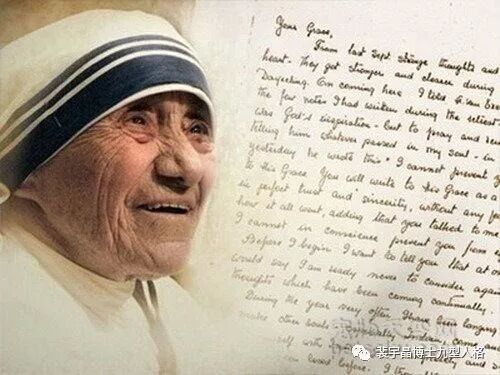 Your Grace,
From last Sept. strange thoughts and
heart. They got stronger and clearer during
Darjeeling. On coming here I told
the few notes I had written during the retreat
was God's inspiration - but to pray and
telling him whatever passed in my soul - in
yesterday he wrote this "I cannot prevent
to His Grace. You will write to his Grace as a
in perfect trust and sincerity, without any
how it all went, adding that you talked to me
I cannot in conscience prevent you from
Before I begin I want to tell you that at
would say I am ready never to consider again
thoughts which have been coming continually.
During the year very often I have been longing
make other souls Indian, come and
self with
before.
裴宇晶博士九型人格